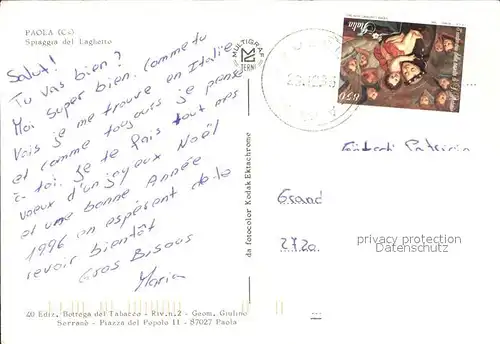 PAOLA (Cs)
Spiaggia del Laghetto
Salut!
Tu vas bien?
Moi super bien. Comme tu
vois je me trouve en Italie
et comme toujours je pense
à toi. Je te fais tout mes
voeux d'un joyeux Noël
et une bonne Année
1996 en espérant de te
revoir bientôt
Gros Bisous
Maria
MULTIGRAF
TERNI
da fotocolor Kodak Ektachrome
Italia
Grand
2720
privacy protection
Datenschutz
40 Ediz. Bottega del Tabacco - Riv. n. 2 - Geom. Giulino
Serranò - Piazza del Popolo 11 - 87027 Paola